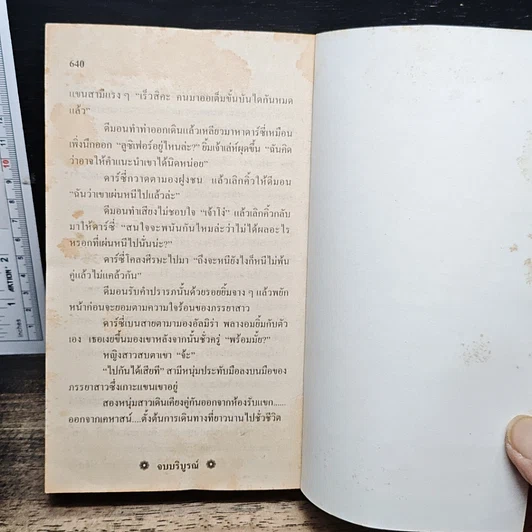 640
แขนสามีแรง ๆ “เร็วสิคะ คนมาออเต็มขั้นบันไดกันหมด
แล้ว”
ดีมอนทำท่าออกเดินแล้วเหลียวมาหาดาร์ซี่เหมือน
เพิ่งนึกออก “ลูซิเฟอร์อยู่ไหนล่ะ?” ยิ้มเจ้าเล่ห์ผุดขึ้น “ฉันคิด
ว่าอาจให้คำแนะนำเขาได้นิดหน่อย”
ดาร์ซี่กวาดตามองฝูงชน แล้วเลิกคิ้วให้ดีมอน
“ฉันว่าเขาเผ่นหนีไปแล้วล่ะ”
ดีมอนทำเสียงไม่ชอบใจ “เจ้าโง่” แล้วเลิกคิ้วกลับ
มาให้ดาร์ซี่ “สนใจจะพนันกันไหมล่ะว่าไม่ได้ผลอะไร
หรอกที่เผ่นหนีไปนั่นน่ะ?”
ดาร์ซี่โคลงศีรษะไปมา “ถึงจะหนียังไงก็หนีไม่พ้น
คู่แล้วไม่แคล้วกัน”
ดีมอนรับคำปรารภนั้นด้วยรอยยิ้มจาง ๆ แล้วพยัก
หน้าก่อนจะยอมตามความใจร้อนของภรรยาสาว
ดาร์ซี่เบนสายตามามองอัลมิร่า พลางอมยิ้มกับตัว
เอง เธอเงยขึ้นมองเขาหลังจากนั้นชั่วครู่ “พร้อมมั้ย?”
หญิงสาวสบตาเขา “จ้ะ”
“ไปกันได้เสียที” สามีหนุ่มประทับมือลงบนมือของ
ภรรยาสาวซึ่งเกาะแขนเขาอยู่
สองหนุ่มสาวเดินเคียงคู่กันออกจากห้องรับแขก......
ออกจากเคหาสน์....ตั้งต้นการเดินทางที่ยาวนานไปชั่วชีวิต
จบบริบูรณ์
10
1
2
inches